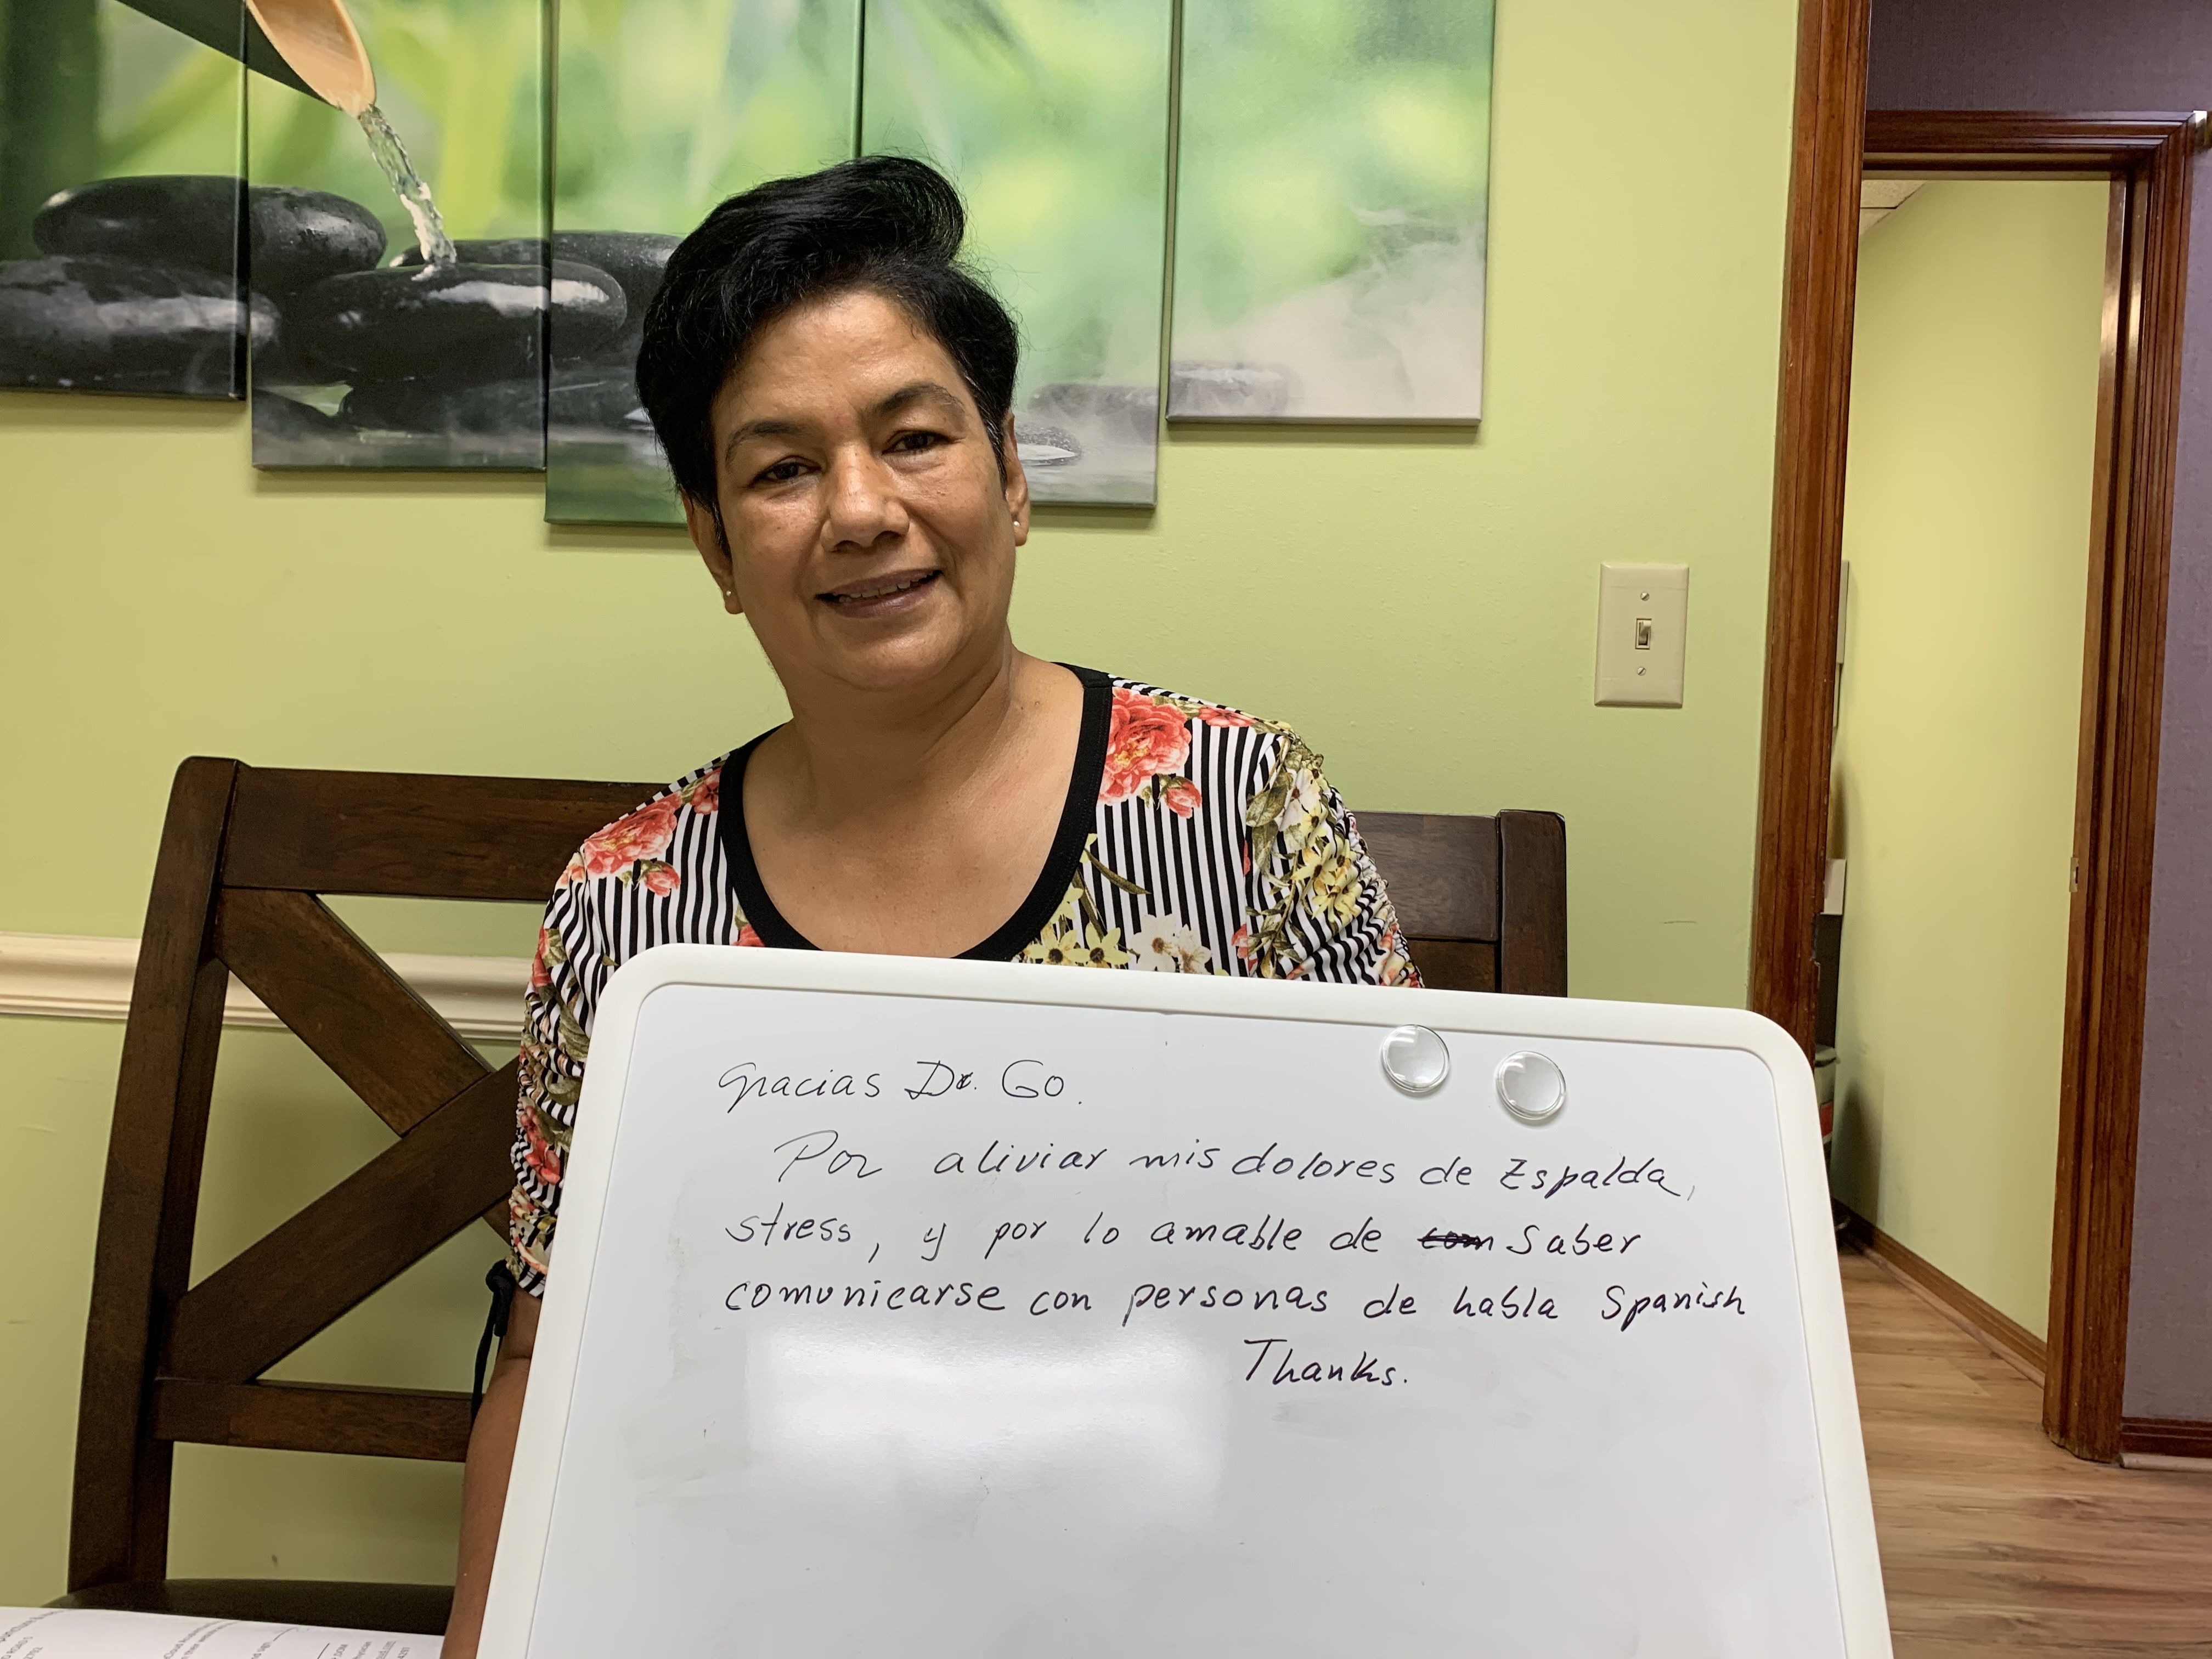 Gracias Dr. Go.
Por aliviar mis dolores de Espalda,
stress, y por lo amable de Saber
comunicarse con personas de habla Spanish
Thanks.